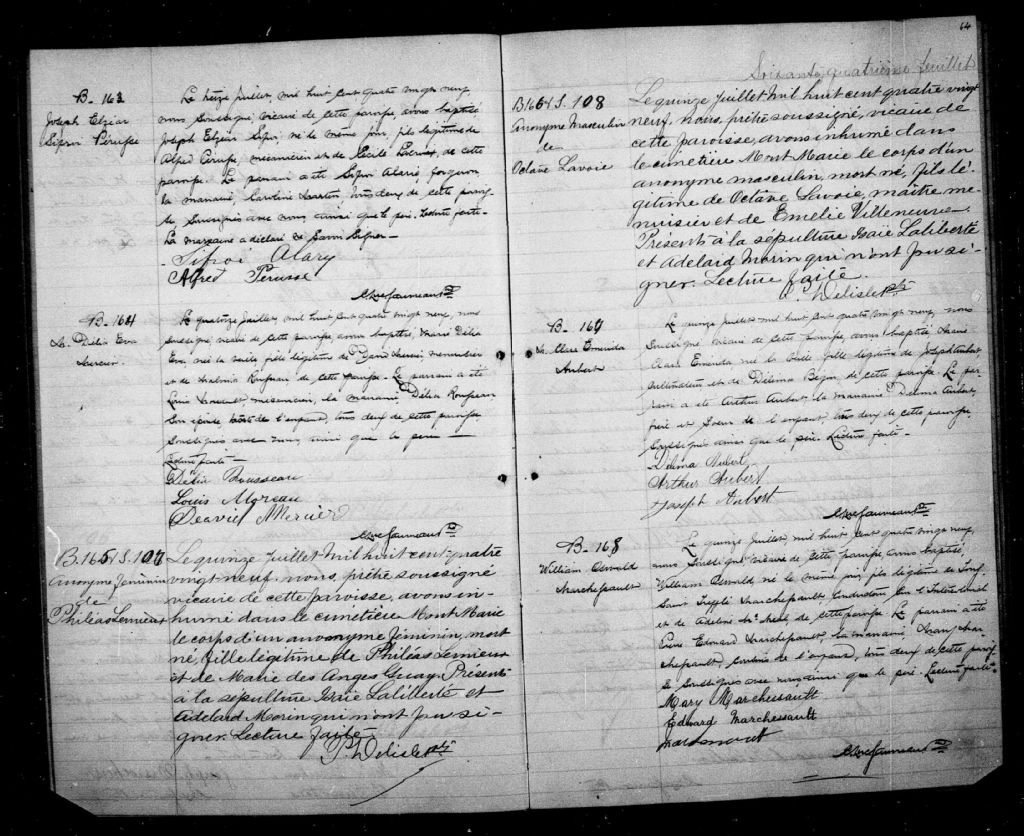 B_ 163
Joseph Elzéar
Sifroi Pérusse
Le treize Juillet, mil huit cent quatre vingt neuf,
nous soussigné, vicaire de cette paroisse, avons baptisé
Joseph Elzéar Sifroi, né le même jour, fils légitime de
Alfred Pérusse, menuisier et de Lacroix, de cette
paroisse. Le parrain a été Sifroi Alarie, forgeron,
la marraine, Caroline tous deux de cette paroisse
soussignés avec nous ainsi que le père. Lecture faite.
La marraine a déclaré ne savoir signer.
Sifroi Alary
Alfred Pérusse
B_ 164
M. Délia Eva
Mercier.
Le quatorze Juillet, mil huit cent quatre vingt neuf, nous
soussigné, vicaire de cette paroisse, avons baptisé, Marie Délia
Eva, née la veille, fille légitime de Mercier, menuisier
et de Malvina Rousseau de cette paroisse. Le parrain a été
Louis menuisier, la marraine, Délia Rousseau
son épouse, de l'enfant, tous deux de cette paroisse
soussignés avec nous, ainsi que le père
Lecture faite
Délia Rousseau
Louis Moreau
Mercier
B.165 et S. 107
Anonyme féminin
de
Philéas Lemieux
Le quinze Juillet Mil huit cent quatre
vingt neuf. nous, prêtre soussigné
vicaire de cette paroisse, avons in-
humé dans le cimetière Mont Marie
le corps d'un anonyme féminin, mort
né, fille légitime de Philéas Lemieux
et de Marie des Anges Guay. Présents
à la sépulture Isaïe Laliberté et
Adelaid Morin qui n'ont pu si-
gner. Lecture faite.
P. Delisle ptre
64
Soixante quatrième feuillet
B.166 et S. 108
Anonyme Masculin
de
Octave Lavoie
Le quinze Juillet Mil huit cent quatre vingt
neuf. Nous, prêtre soussigné, vicaire de
cette paroisse, avons inhumé dans
le cimetière Mont Marie le corps d'un
anonyme masculin, mort né, fils lé-
gitime de Octave Lavoie, maître me-
nuisier et de Emelie Villeneuve.
Présents à la sépulture Isaïe Laliberté
et Adelaid Morin qui n'ont pu si-
gner. Lecture faite.
Delisle ptre
B_ 167
M. Clara Émerinda
Aubert
Le quinze Juillet, mil huit cent quatre vingt neuf, nous
soussigné, vicaire de cette paroisse, avons baptisé Marie
Clara née la veille, fille légitime de Joseph Aubert
et de Délima Bégin, de cette paroisse. Le par-
rain a été Arthur Aubert, la marraine Delima Aubert,
frère et soeur de l'enfant, tous deux de cette paroisse,
soussignés ainsi que le père. Lecture faite.
Delima Aubert
Arthur Aubert
Joseph Aubert
B_ 168
William Oswald
Marchessault
Le quinze Juillet, mil huit cent quatre vingt neuf,
nous soussigné, vicaire de cette paroisse avons baptisé,
William Oswald, né le même jour, fils légitime de
Marchessault, conducteur sur l'Intercolonial
et de Adeline de cette paroisse. Le parrain a été
Edouard Marchessault, la marraine, Mar-
chessault, de l'enfant, tous deux de cette paroisse
soussignés avec nous ainsi que le père. Lecture faite.
Mary Marchessault
Edward Marchessault